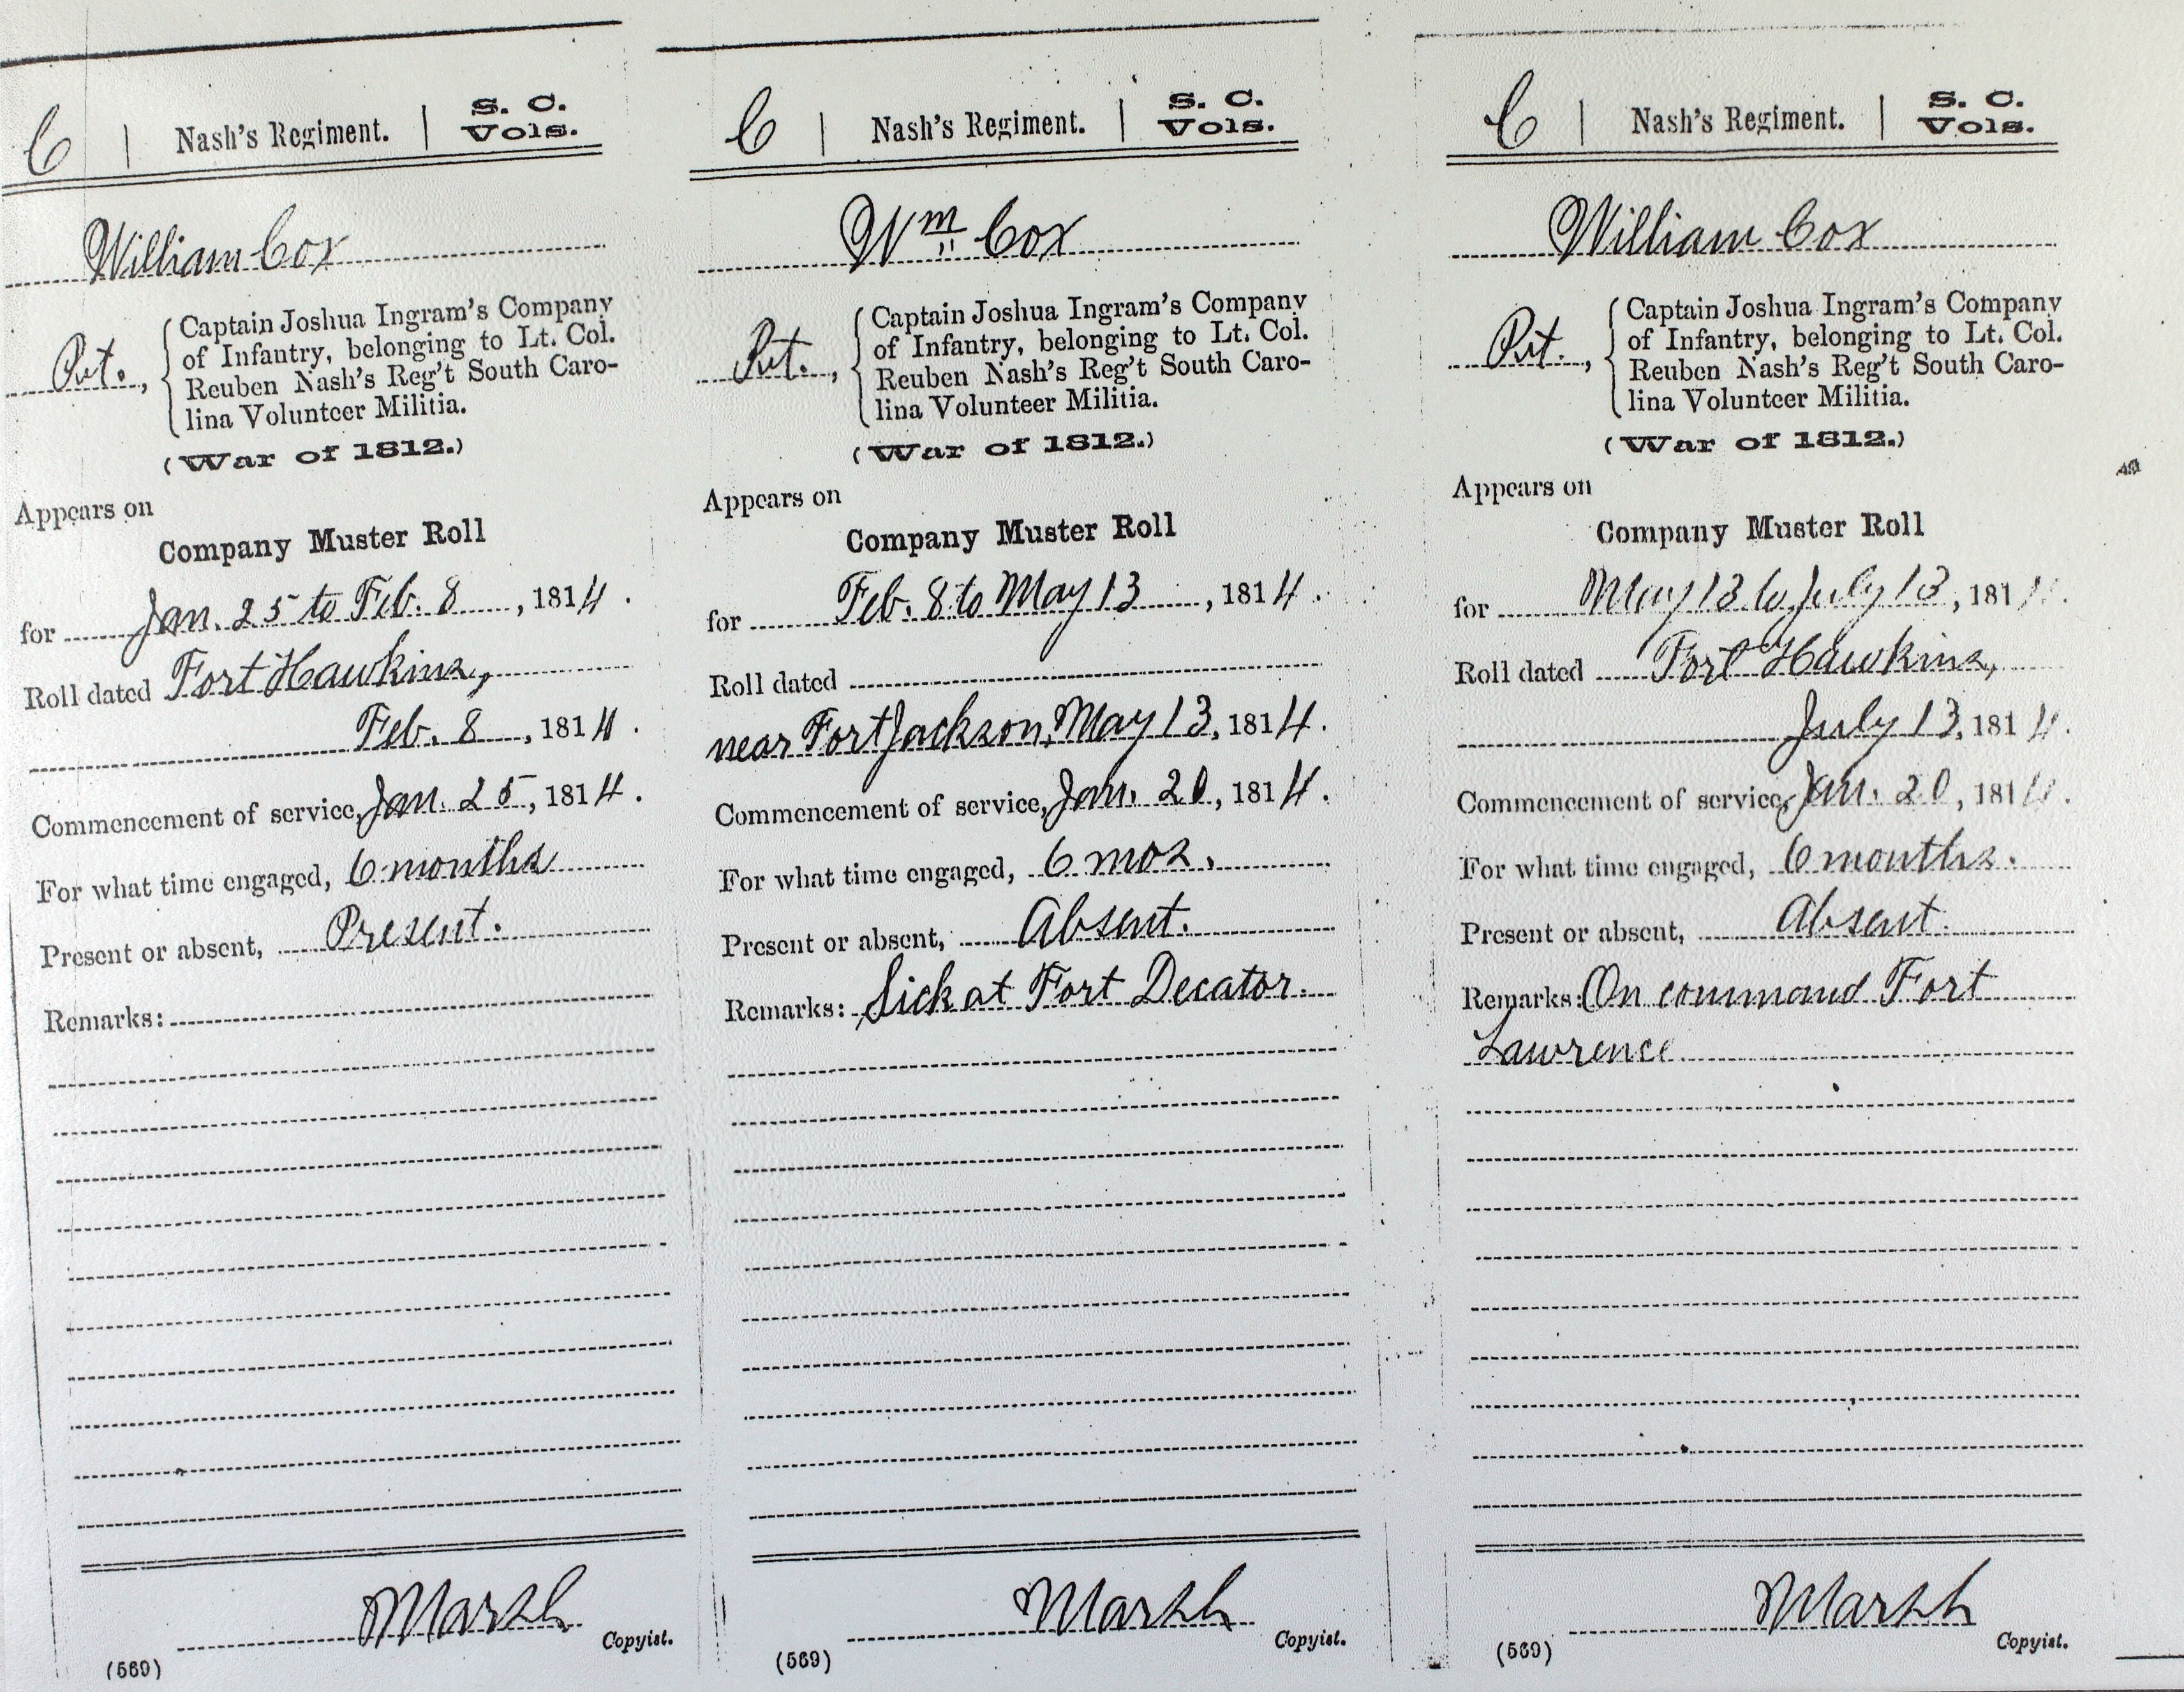 C | Nash's Regiment. | S. C. Vols.
William Cox
Pvt., { Captain Joshua Ingram's Company
of Infantry, belonging to Lt. Col.
Reuben Nash's Reg't South Caro-
lina Volunteer Militia.
(War of 1812.)
Appears on
Company Muster Roll
for Jan. 25 to Feb. 8, 1814.
Roll dated Fort Hawkins,
Feb. 8, 1814.
Commencement of service, Jan. 25, 1814.
For what time engaged, 6 months
Present or absent, Present.
Remarks:
Marsh
Copyist.
(569)
C | Nash's Regiment. | S. C. Vols.
Wm Cox
Pvt., { Captain Joshua Ingram's Company
of Infantry, belonging to Lt. Col.
Reuben Nash's Reg't South Caro-
lina Volunteer Militia.
(War of 1812.)
Appears on
Company Muster Roll
for Feb. 8 to May 13, 1814.
Roll dated
near Fort Jackson, May 13, 1814.
Commencement of service, Jan. 20, 1814.
For what time engaged, 6 mos.
Present or absent, Absent.
Remarks: Sick at Fort Decator.
Marsh
Copyist.
(569)
C | Nash's Regiment. | S. C. Vols.
William Cox
Pvt., { Captain Joshua Ingram's Company
of Infantry, belonging to Lt. Col.
Reuben Nash's Reg't South Caro-
lina Volunteer Militia.
(War of 1812.)
Appears on
Company Muster Roll
for May 13 to July 13, 1814.
Roll dated Fort Hawkins,
July 13, 1814.
Commencement of service, Jan. 20, 1814.
For what time engaged, 6 months.
Present or absent, Absent.
Remarks: On command Fort
Lawrence
Marsh
Copyist.
(569)